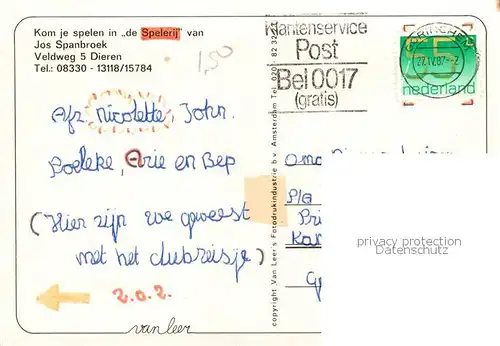 Kom je spelen in "de Spelerij" van
Jos Spanbroek
Veldweg 5 Dieren
Tel.: 08330 - 13118/15784
1,50
Klantenservice
Post
Bel 0017
(gratis)
27.IV.87
65
nederland
Afz. Nicolette, John.
Boeleke, Arie en Bep
(Hier zijn we geweest
met het clubreisje)
2.0.2.
van leer
copyright Van Leer's Fotodrukindustrie b.v. Amsterdam Tel. 020
Oma
P/a
Pri
Kar
privacy protection
Datenschutz